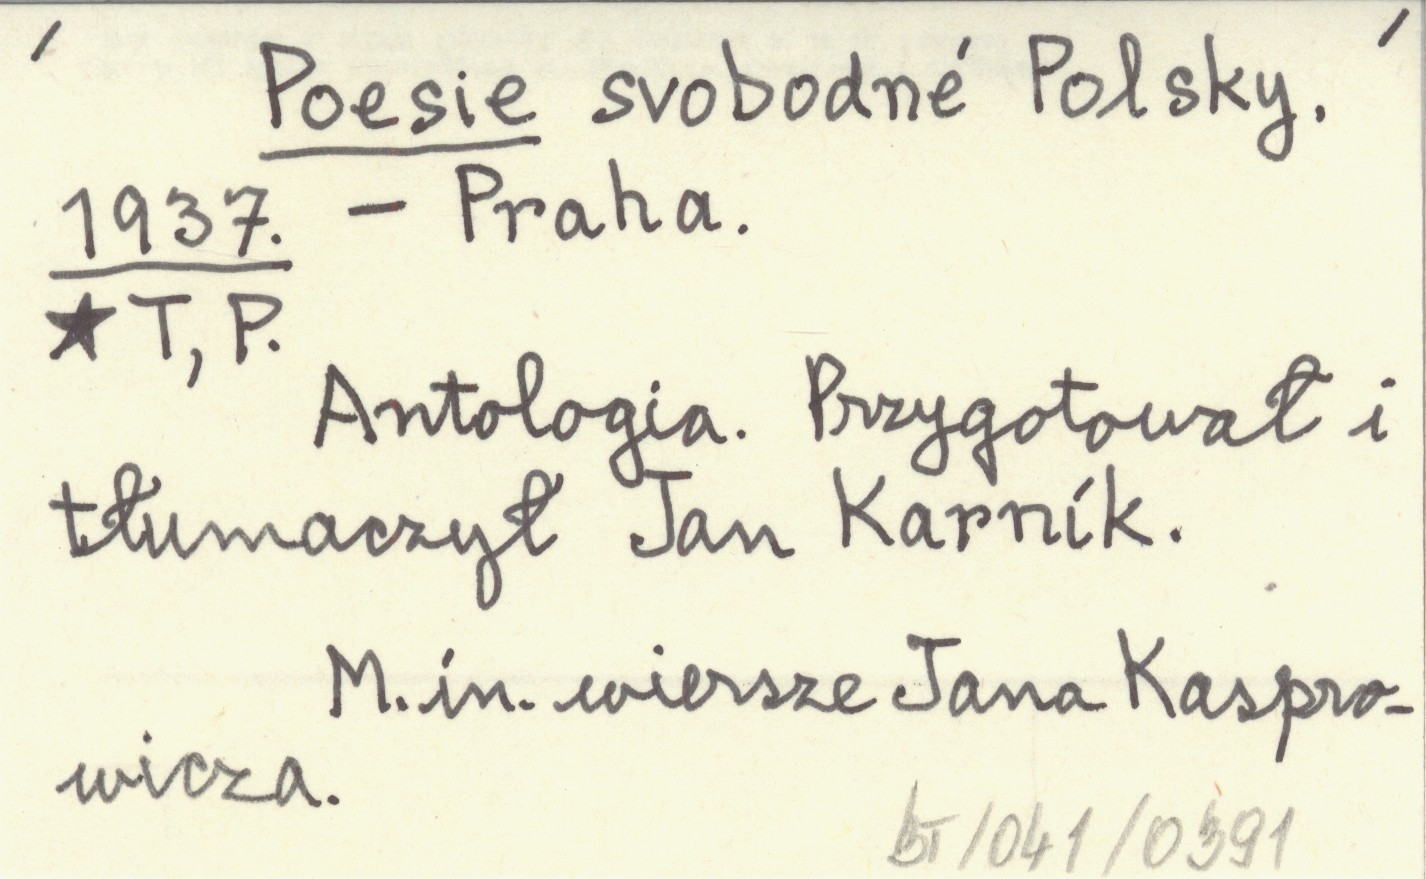 Poesie svobodné Polsky.
1937. – Praha.
★ T, P.
Antologia. Przygotował i
tłumaczył Jan Karník.
M. in. wiersze Jana Kaspro-
wicza.
/041/0391